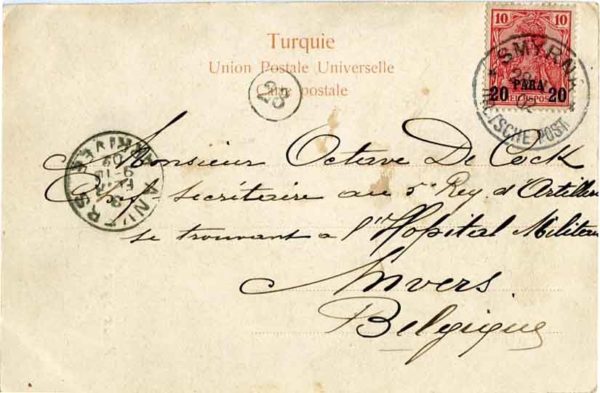 Turquie
Union Postale Universelle
Carte postale
10 10
PARA
20 20
REICHSPOST
SMYRNA
DEUTSCHE POST
28
ANVERS
ARRIVEE
Monsieur Octave De Cock
secrétaire au 5e Rég d'Artillerie
se trouvant à l'Hopital Militaire
Anvers
Belgique